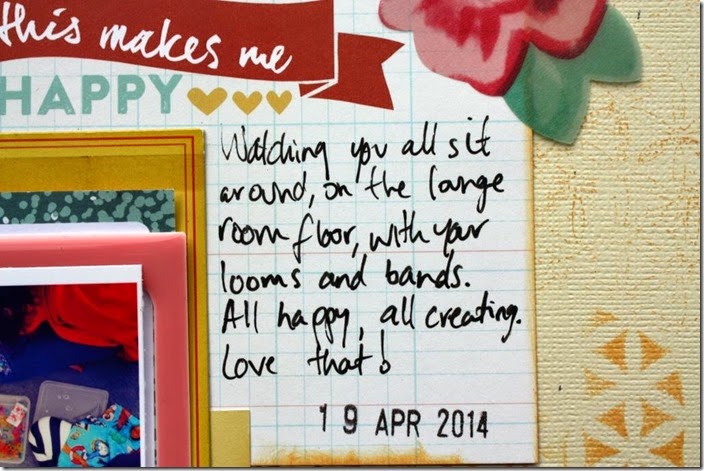 this makes me
HAPPY
Watching you all sit
around, on the lounge
room floor, with your
looms and bands.
All happy, all creating.
Love that!
19 APR 2014